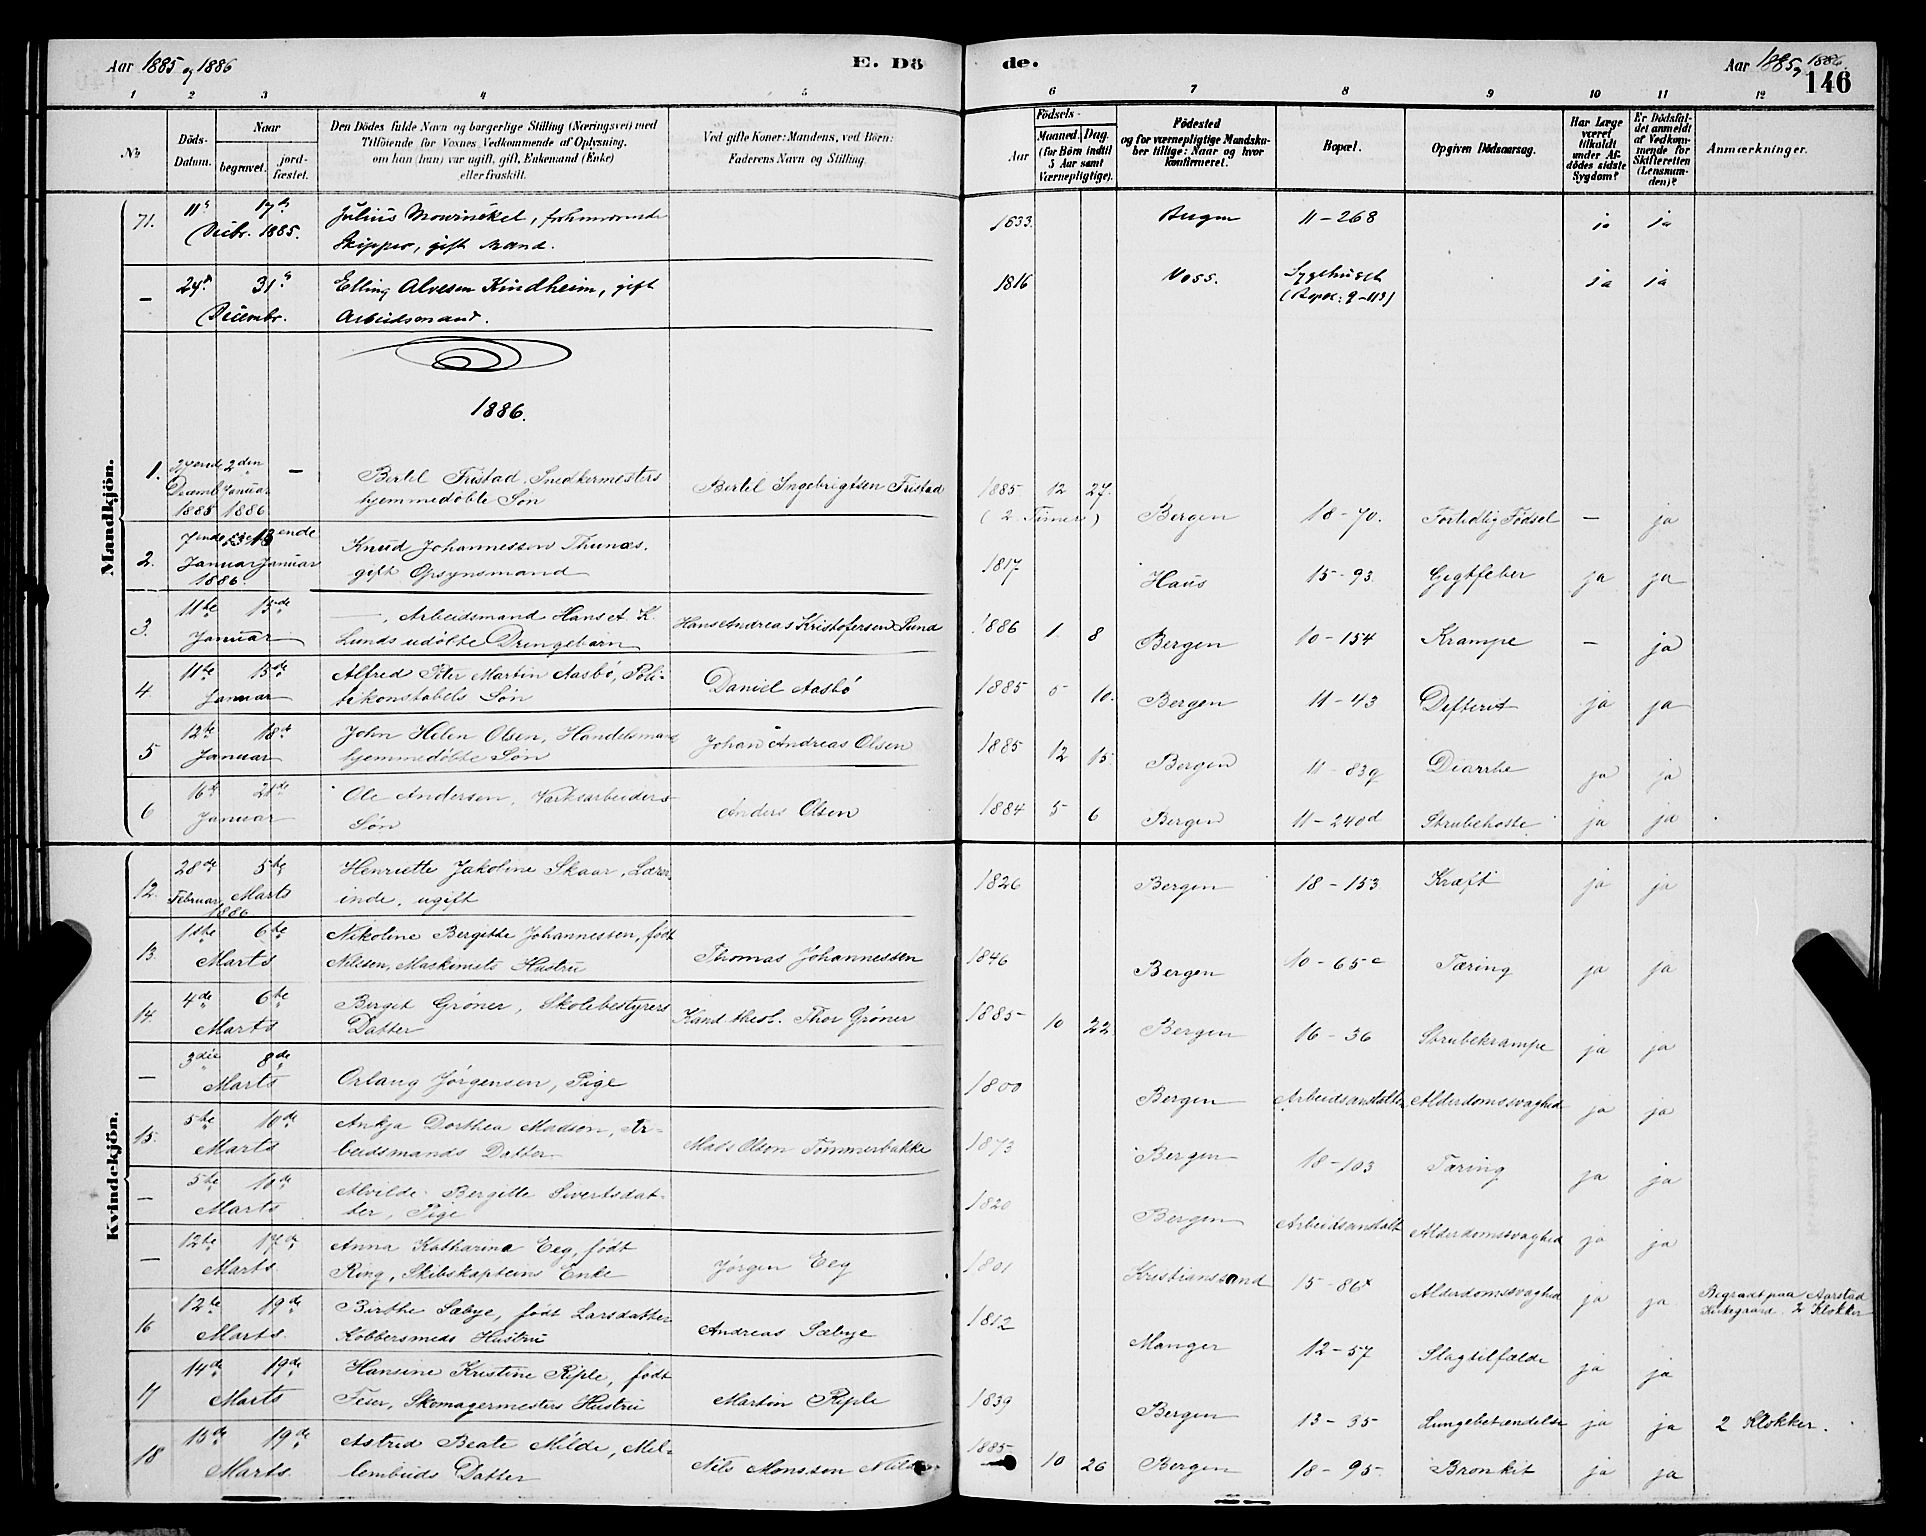 Aar 1885 og 1886
E. Dö
de.
Aar 1885, 1886.
146
1 2 3 4 5 6 7 8 9 10 11 12
No
Döds-
Datum.
Naar
begravet.
jord-
fæstet.
Den Dödes fulde Navn og borgerlige Stilling (Næringsvei) med
Tilföiende for Voxnes Vedkommende af Oplysning,
om han (hun) var ugift, gift, Enkemand (Enke)
eller fraskilt.
Ved gifte Koner: Mandens, ved Börn:
Faderens Navn og Stilling.
Födsels-
Aar
Maaned.
Dag.
(for Börn indtil
5 Aar samt
Værnepligtige).
Födested
og for værnepligtige Mandska-
ber tillige: Naar og hvor
konfirmeret.
Bopæl.
Opgiven Dödsaarsag.
Har Læge
været
tilkaldt
under Af-
dödes sidste
Sygdom?
Er Dödsfal-
det anmeldt
af Vedkom-
mende for
Skifteretten
(Lensman-
den)?
Anmærkninger.
Mandkjön.
71. 11te 17de Julius Mowinckel, forhenværende 1833. Bergen 11-268 ja ja
Decbr. 1885. Skipper, gift Mand.
- 24de 31te Elling Alvesen Kindheim, gift 1816 Voss. Sygehuset ja ja
Decembr. Arbeidsmand. (Bopæl: 9-113)
1886.
1. 27ende 2den - Bertel Fristad, Snedkermesters Bertel Ingebrigtsen Fristad 1885 12 27.
Decemb Januar hjemmedöbte Søn (2 Timer) Bergen 18-70. Fortidlig Fødsel - ja
1885 1886
2. 7ende 13ende Knud Johannessen Thunæs, 1817 Haus 15-93. Gigtfeber ja ja
Januar Januar gift Opsynsmand
1886.
3. 11te 15de -, Arbeidsmand Hans A. K. Hans Andreas Kristofersen Lund 1886 1 8 Bergen 10-154 Krampe - ja
Januar Lunds udøbte Drengebarn
4. 11te 15de Alfred Peter Martin Aasbø, Poli- Daniel Aasbø 1885 5 10. Bergen 11-43 Defterit ja ja
Januar tikonstabels Søn
5 12te 18de John Helen Olsen, Handelsmand Johan Andreas Olsen 1885 12 15 Bergen 11-83g Diarrhe ja ja
Januar hjemmedöbte Søn
6 16de 21de Ole Andersen, Værksarbeiders Anders Olsen 1884 5 6 Bergen 11-240d Strubehoste ja ja
Januar Søn
Kvindekjön.
12. 28de 5te Henriette Jakoline Skaar, Lærer- 1826 Bergen 18-153 Kræft ja ja
Februar Marts inde, ugift
1886
13. 1ste 6te Nikoline Bergitte Johannessen, født Thomas Johannessen 1846 Bergen 10-65c Tæring ja ja
Marts Nilsen, Maskinists Hustru
14. 4de 6te Berget Grøner, Skolebestyrers Kand. theol. Thor Grøner 1885 10 22 Bergen 16-36 Strubekrampe ja ja
Marts Datter
- 3die 8de Orlaug Jørgensen, Pige 1800 Bergen Arbeidsanstalten Alderdomssvaghed ja ja
Marts
15. 5te 10de Ankja Dorthea Madsen, Ar- Mads Olsen Tømmerbakke 1873 Bergen 18-103 Tæring ja ja
Marts beidsmands Datter
- 5te 10de Alvilde Bergitte Sivertsdat- 1820 Bergen Arbeidsanstalt Alderdomssvaghed ja ja
Marts ter, Pige
- 12te 17de Anna Katharina Eeg, født Jørgen Eeg 1801 Kristianssand 15-86x Alderdomssvaghed ja ja Begravet paa Aarstad
Marts Ring, Skibskapteins Enke Kirkegaard. 2 Klokker
16 12te 19de Birthe Sæbye, født Larsdatter Andreas Sæbye 1812 Manger 12-57 Slagtilfælde ja ja
Marts Kobbersmeds Hustru
17 14de 19de Hansine Kristine Riple, født Martin Riple 1839 Bergen 13-35 Lungebetændelse ja ja 2 Klokker.
Marts Feier, Skomagermesters Hustru
18 15de 19de Astrid Beate Milde, Mel- Nils Monssen 1885 10 26 Bergen 18-95. Bronkit ja ja
Marts lembuds Datter